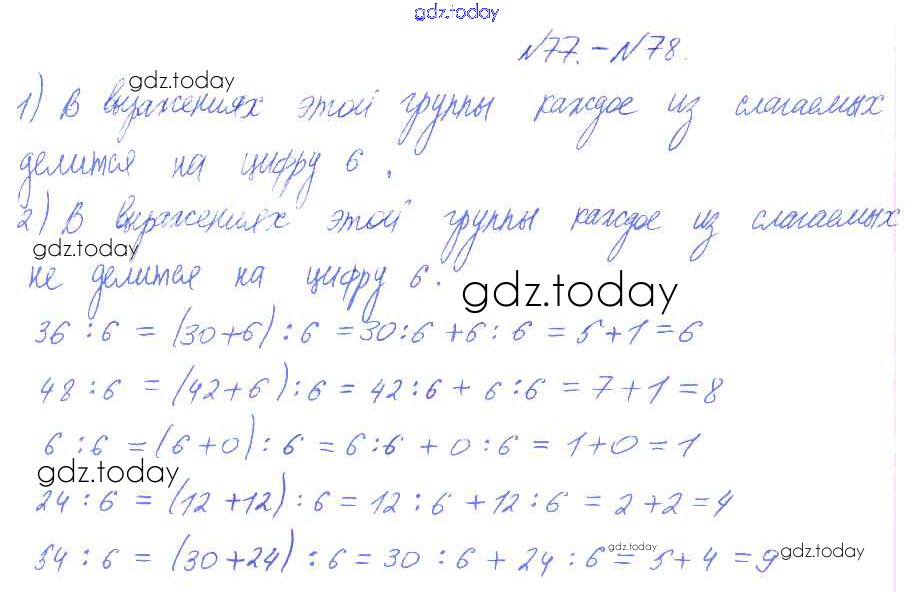 gdz.today
№77. – №78.
gdz.today
1) В выражениях этой группы каждое из слагаемых
делится на цифру 6.
2) В выражениях этой группы каждое из слагаемых
gdz.today
не делится на цифру 6.
gdz.today
36 : 6 = (30+6) : 6 = 30:6 + 6 : 6 = 5+1 = 6
48 : 6 = (42+6) : 6 = 42:6 + 6:6 = 7+1 = 8
6 : 6 = (6+0) : 6 = 6:6 + 0:6 = 1+0 = 1
gdz.today
24 : 6 = (12+12) : 6 = 12 : 6 + 12 : 6 = 2+2 = 4
54 : 6 = (30+24) : 6 = 30 : 6 + 24 : 6 = 5+4 = 9
gdz.today
gdz.today